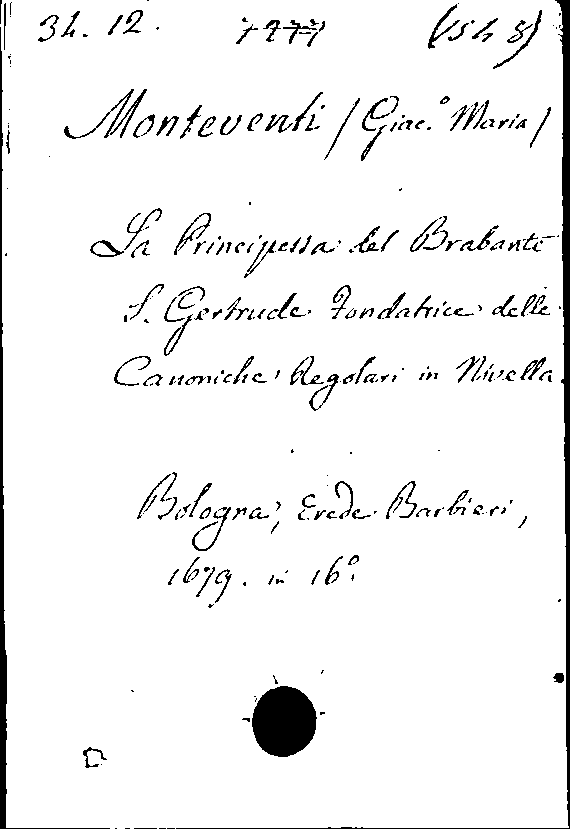 34. 12. 7277 (1548)
Monteventi / Giac.º Maria /
La Principessa del Brabante
S. Gertrude Fondatrice delle
Canoniche Regolari in Nivella.
Bologna, Erede Barbieri,
1679. in 16º.